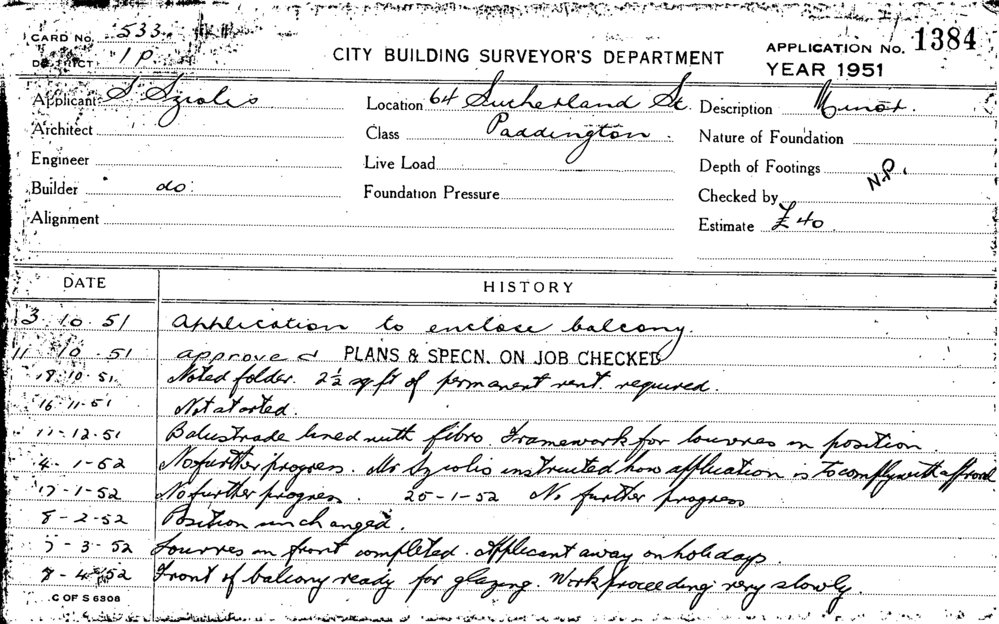 CARD No. 533
DISTRICT 1 P.
CITY BUILDING SURVEYOR'S DEPARTMENT
APPLICATION No. 1384
YEAR 1951
Applicant S Sziolis
Location 64 Sutherland St.
Description Minor.
Architect
Class Paddington.
Nature of Foundation
Engineer
Live Load
Depth of Footings
N.P.
Builder do.
Foundation Pressure
Checked by
Alignment
Estimate £40
DATE HISTORY
3. 10. 51 Application to enclose balcony.
11. 10. 51 approved PLANS & SPECN. ON JOB CHECKED
18. 10. 51 Noted folder. 2½ sq ft of permanent vent. required.
16. 11. 51 Not started.
11-12-51 Balustrade lined with fibro. Framework for louvres in position
4. 1-52 No further progress. Mr Sziolis instructed how application is to comply with approval
17-1-52 No further progress. 25-1-52 No further progress
8-2-52 Position unchanged.
7-3-52 Louvres on front completed. Applicant away on holidays.
8-4-52 Front of balcony ready for glazing. Work proceeding very slowly.
C OF S 6808